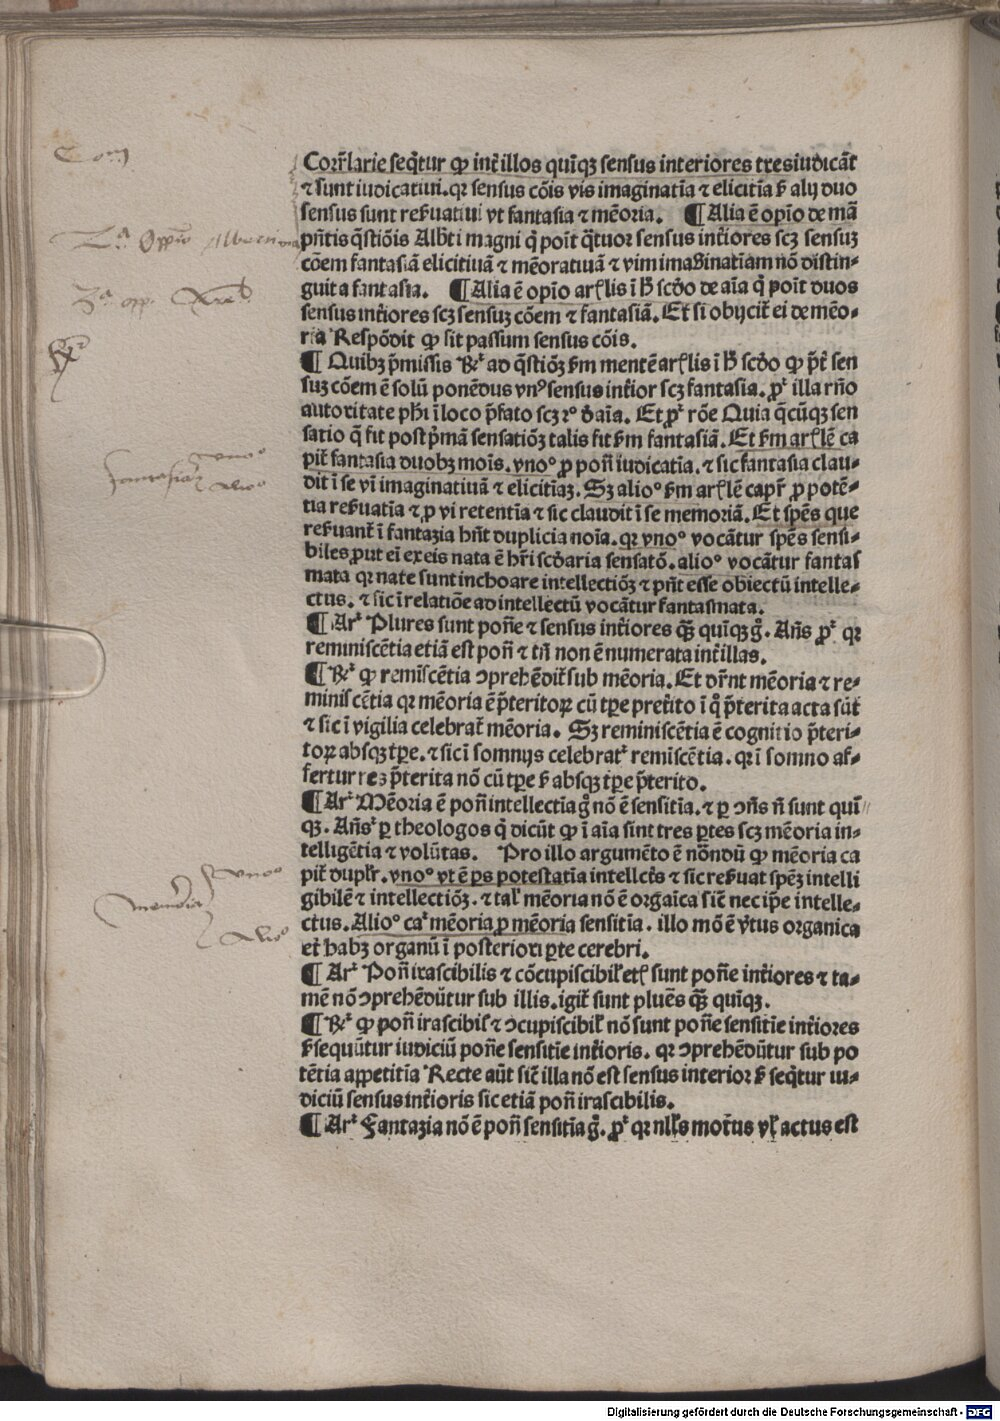 Corr̄larie seq̄tur ꝙ int̄ illos quīqꝫ sensus interiores tres iudicāt
⁊ sunt iudicatiui. qꝛ sensus cōis vis imaginatīa ⁊ elicitīa ẜ alij duo
sensus sunt reẜuatiui vt fantasia ⁊ mēoria. ¶ Alia ē opīo de mā
pn̄tis q̄stiōis Alb̄ti magni q̄ poīt q̄tuor sensus int̄iores scꝫ sensuꝫ
cōem fantasiā elicitiuā ⁊ mēoratiuā ⁊ vim imaginatīam nō distin-
guit a fantasia. ¶ Alia ē opīo ar̄tlis ī ħ scd̄o de aīa q̄ poīt duos
sensus int̄iores scꝫ sensuꝫ cōem ⁊ fantasiā. Et si obijcit̄ ei de mēo-
ria Respōdit ꝙ sit passum sensus cōis.
¶ Quibꝫ p̄missis ℞ꝛ ad q̄stiōꝫ ẜm mentē ar̄tlis ī ħ scd̄o ꝙ p̄t̄ sen
suꝫ cōem ē solū ponēdus vnꝰ sensus int̄ior scꝫ fantasia. pꝛ illa rn̄o
autoritate ph̄i ī loco p̄fato scꝫ ꝛº d̄ aīa. Et pꝛ rōe Quia q̄cūqꝫ sen
satio q̄ fit post p̄mā sensatiōꝫ talis fit ẜm fantasiā. Et ẜm ar̄tlē ca
pit̄ fantasia duobꝫ moīs. vnoº ꝓ pon̄ iudicatīa. ⁊ sic fantasia clau-
dit ī se vī imaginatiuā ⁊ elicitīaꝫ. Sꝫ alioº ẜm ar̄tlē capr̄ ꝓ potē-
tia reẜuatīa ⁊ ꝓ vi retentīa ⁊ sic claudit ī se memoriā. Et spēs que
reẜuant̄ ī fantazia hn̄t duplicia noīa. qꝛ vnoº vocātur spēs sensi-
biles ꝓut eī exeis nata ē hr̄i scd̄aria sensatō. alioº vocātur fantas
mata qꝛ nate sunt inchoare intellectiōꝫ ⁊ pn̄t esse obiectū intelle-
ctus. ⁊ sic ī relatiōe ad intellectū vocātur fantasmata.
¶ Arꝛ Plures sunt pon̄e ⁊ sensus int̄iores q̄ꝫ quīqꝫ g̊. An̄s pꝛ qꝛ
reminiscētia etiā est pon̄ ⁊ tn̄ non ē numerata int̄ illas.
¶ ℞ꝛ ꝙ remīscētia ↄprehēdit̄ sub mēoria. Et dr̄nt mēoria ⁊ re-
miniscētia qꝛ mēoria ē p̄teritoꝝ cū tꝑe pret̄ito ī q̄ p̄terita acta sūt
⁊ sic ī vigilia celebrat̄ mēoria. Sꝫ reminiscētia ē cognitio p̄teri-
toꝝ absqꝫ tꝑe. ⁊ sic ī somnijs celebratꝛ remīscētia. qꝛ ī somno af-
fertur res p̄terita nō cū tꝑe ẜ absqꝫ tꝑe p̄terito.
¶ Arꝛ Mēoria ē pon̄ intellectīa g̊ nō ē sensitīa. ⁊ ꝑ ↄn̄s n̄ sunt quī
qꝫ. An̄sꝛ ꝑ theologos q̄ dicūt ꝙ ī aīa sīnt tres ꝑtes scꝫ mēoria in-
telligētia ⁊ volūtas. Pro illo argumēto ē nōndū ꝙ mēoria ca
pit̄ duplr̄. vnoº vt ē ꝑs potestatīa intellctīs ⁊ sic reẜuat spēꝫ intelli
gibilē ⁊ intellectiōꝫ. ⁊ talꝭ mēoria nō ē orgaīca sic̄ nec ipē intelle-
ctus. Alioº caꝛ mēoria ꝓ mēoria sensitīa. illo mō ē v̄tus organica
et̄ habꝫ organū ī posteriori ꝑte cerebri.
¶ Arꝛ Pon̄ irascibilis ⁊ cōcupiscibilꝭ etꝭ sunt pon̄e int̄iores ⁊ ta-
mē nō ↄprehēdūtur sub illis. igit̄ sunt pluēs q̄ꝫ quīqꝫ.
¶ ℞ꝛ ꝙ pon̄ irascibilꝭ ⁊ ↄcupiscibilꝭ nō sunt pon̄e sensitīe int̄iores
ẜ sequūtur iudiciū pon̄e sensitīe int̄ioris. qꝛ ↄprehēdūtur sub po
tētia appetitīa Recte aūt sic̄ illa nō est sensus interior ẜ seq̄tur iu-
diciū sensus int̄ioris sic etiā pon̄ irascibilis.
¶ Arꝛ Fantazia nō ē pon̄ sensitīa g̊. pꝛ qꝛ nll̄s mot̄us vl̄ actus est
2ª Opp̄io Alberti
3ª opp.
fantasia vnoº
alioº
memoria vnoº
alioº
Digitalisierung gefördert durch die Deutsche Forschungsgemeinschaft - DFG